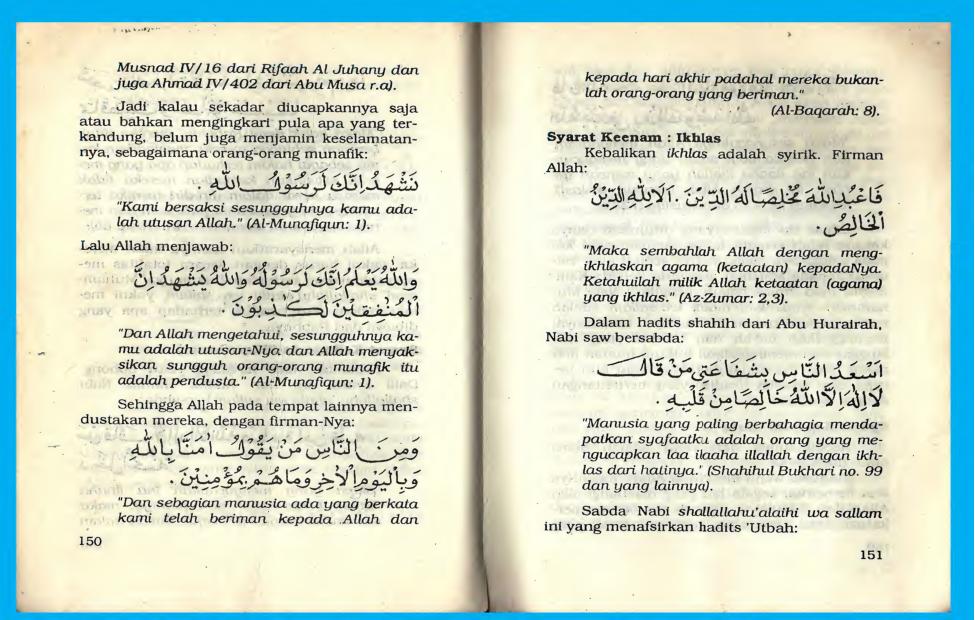 Musnad IV/16 dari Rifaah Al Juhany dan
juga Ahmad IV/402 dari Abu Musa r.a).
Jadi kalau sekadar diucapkannya saja
atau bahkan mengingkari pula apa yang ter-
kandung, belum juga menjamin keselamatan-
nya, sebagaimana orang-orang munafik:
نَشْهَدُ اِنَّكَ لَرَسُوْلُ اللّٰهِ .
"Kami bersaksi sesungguhnya kamu ada-
lah utusan Allah." (Al-Munafiqun: 1).
Lalu Allah menjawab:
وَاللّٰهُ يَعْلَمُ اِنَّكَ لَرَسُوْلُهُ وَاللّٰهُ يَشْهَدُ اِنَّ
الْمُنٰفِقِيْنَ لَكٰذِبُوْنَ .
"Dan Allah mengetahui, sesungguhnya ka-
mu adalah utusan-Nya dan Allah menyak-
sikan sungguh orang-orang munafik itu
adalah pendusta." (Al-Munafiqun: 1).
Sehingga Allah pada tempat lainnya men-
dustakan mereka, dengan firman-Nya:
وَمِنَ النَّاسِ مَنْ يَقُوْلُ اٰمَنَّا بِاللّٰهِ
وَبِالْيَوْمِ الْاٰخِرِ وَمَا هُمْ بِمُؤْمِنِيْنَ .
"Dan sebagian manusia ada yang berkata
kami telah beriman kepada Allah dan
150
kepada hari akhir padahal mereka bukan-
lah orang-orang yang beriman."
(Al-Baqarah: 8).
Syarat Keenam : Ikhlas
Kebalikan ikhlas adalah syirik. Firman
Allah:
فَاعْبُدِ اللّٰهَ مُخْلِصًا لَهُ الدِّيْنَ . اَلَا لِلّٰهِ الدِّيْنُ
الْخَالِصُ .
"Maka sembahlah Allah dengan meng-
ikhlaskan agama (ketaatan) kepadaNya.
Ketahuilah milik Allah ketaatan (agama)
yang ikhlas." (Az-Zumar: 2,3).
Dalam hadits shahih dari Abu Hurairah,
Nabi saw bersabda:
اَسْعَدُ النَّاسِ بِشَفَاعَتِيْ مَنْ قَالَ
لَا اِلٰهَ اِلَّا اللّٰهُ خَالِصًا مِنْ قَلْبِهِ .
"Manusia yang paling berbahagia menda-
patkan syafaatku adalah orang yang me-
ngucapkan laa ilaaha illallah dengan ikh-
las dari hatinya.' (Shahihul Bukhari no. 99
dan yang lainnya).
Sabda Nabi shallallahu'alaihi wa sallam
ini yang menafsirkan hadits 'Utbah:
151